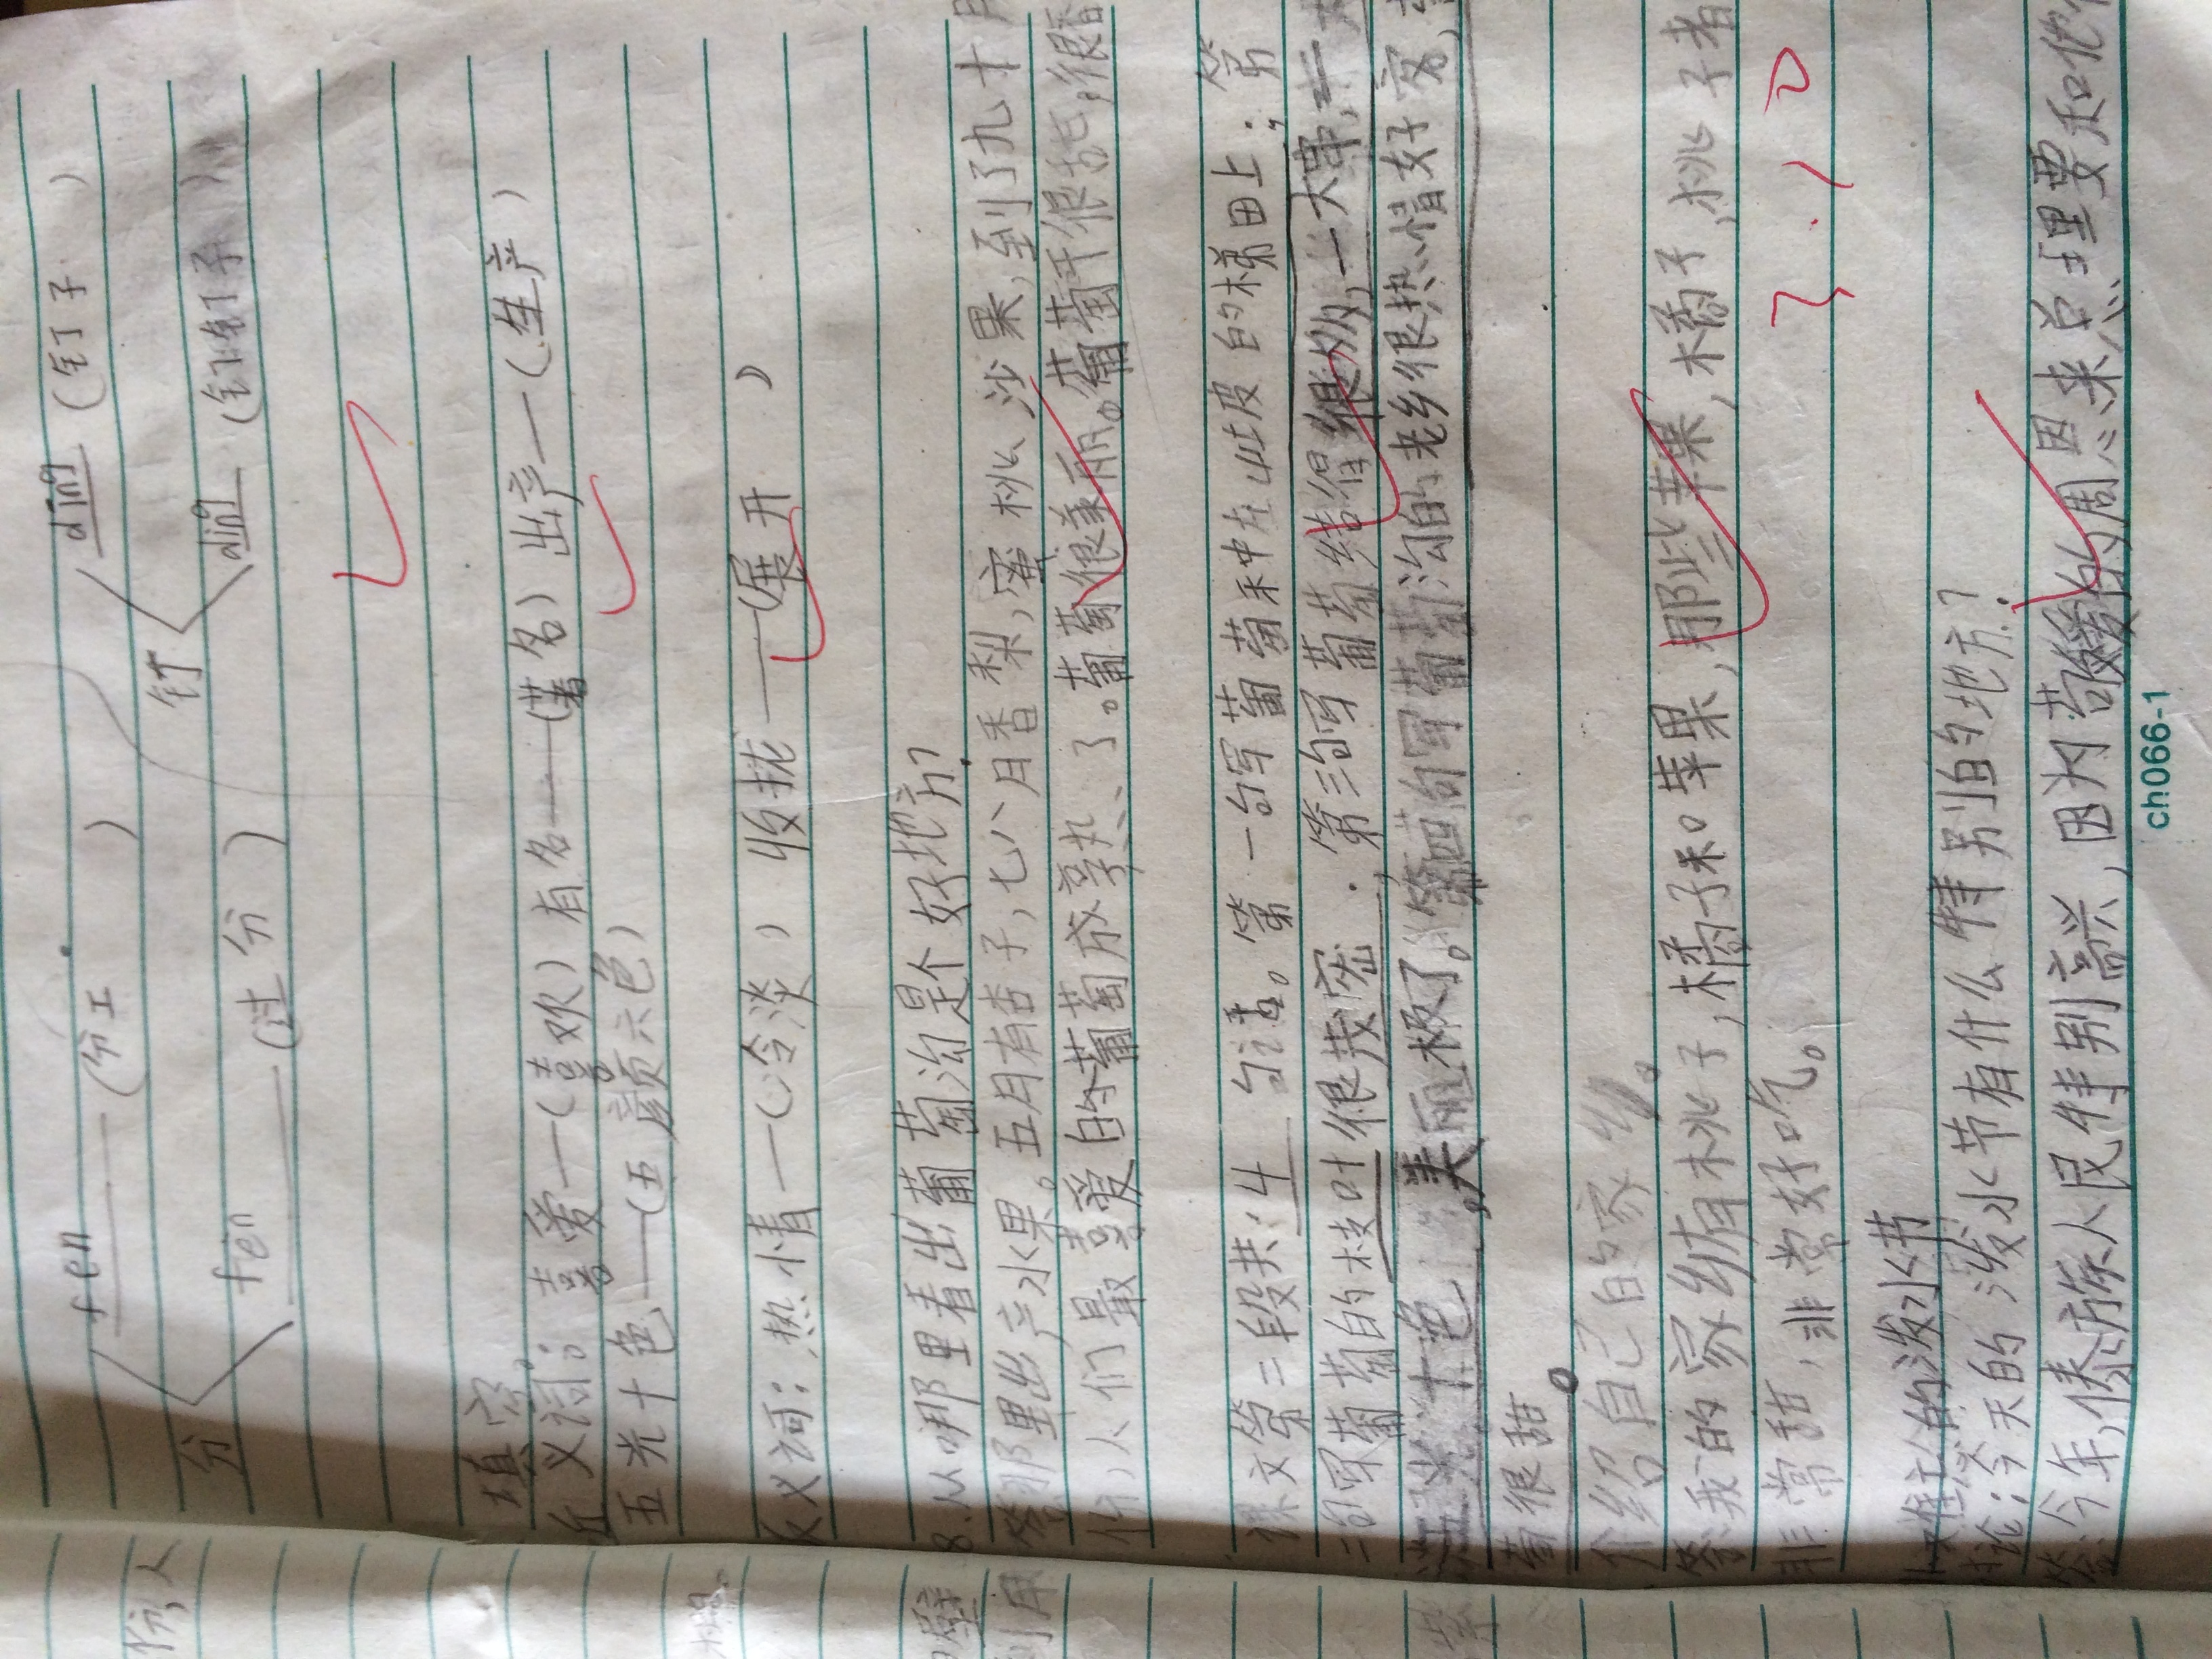 fēn (分工) dīng (钉子)
分 钉
fèn (过分) dìng (钉钉子)
填空
近义词：喜爱—(喜欢) 有名—(著名) 出产—(生产)
五光十色—(五颜六色)
反义词：热情—(冷淡) 收拢—(展开)
8.从哪里看出葡萄沟是个好地方?
答那里出产水果。五月有杏子，七八月香梨，蜜桃，沙果，到了九十月
份，人们最喜爱的葡萄成熟了。葡萄很美丽。葡萄干很甜。很香
课文第二段共：4 句话。第一句写葡萄禾中在山坡的梯田上；第
二句写葡萄的枝叶很茂密；第三句写葡萄结得很多，一大串，一大
五光十色，美丽极了。第四句写葡萄沟的老乡很热情好客，
萄很甜。
介绍自己的家乡。
答我的家乡有桃子，橘子和苹果，那些苹果，橘子，桃子者
非常甜，非常好吃。
3.10
难忘的泼水节
讨论：今天的泼水节有什么特别的地方?
答今年，傣族人民特别高兴，因为敬爱的周恩来总理要和他
ch066-1
份，人